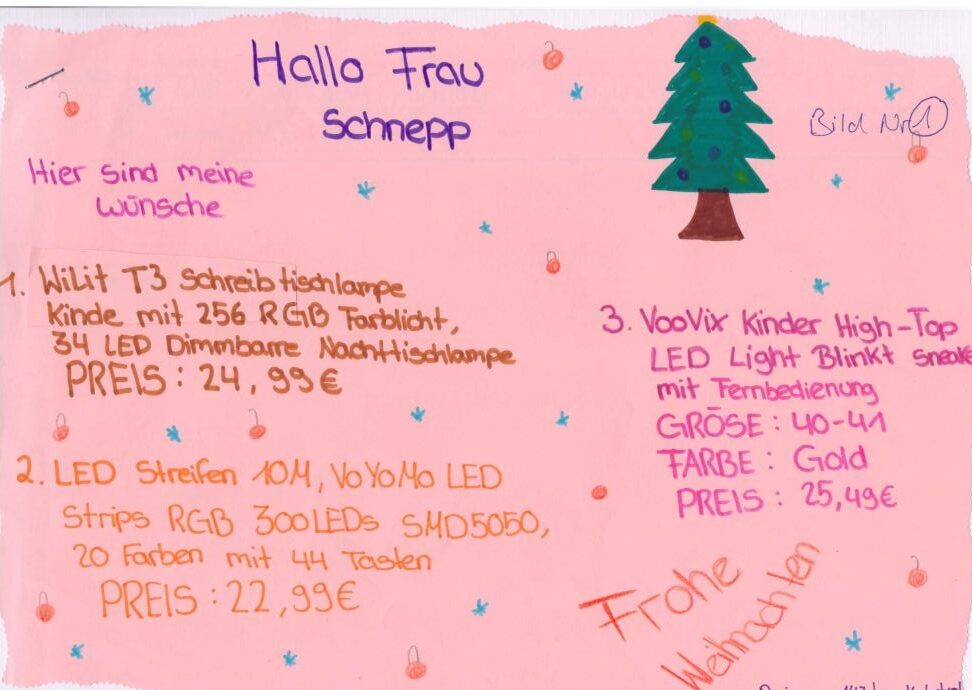 Hallo Frau
Schnepp
Bild Nr. 1
Hier sind meine
wünsche
1. WiLit T3 Schreibtischlampe
Kinde mit 256 RGB Farblicht,
34 LED Dimmbarre Nachttischlampe
PREIS : 24,99€
2. LED Streifen 10M, VoYoMo LED
Strips RGB 300LEDs SMD5050,
20 Farben mit 44 Tasten
PREIS : 22,99€
3. VooVix Kinder High-Top
LED Light Blinkt Sneake
mit Fernbedienung
GRÖSE : 40-41
FARBE : Gold
PREIS : 25,49€
Frohe
Weihnachten